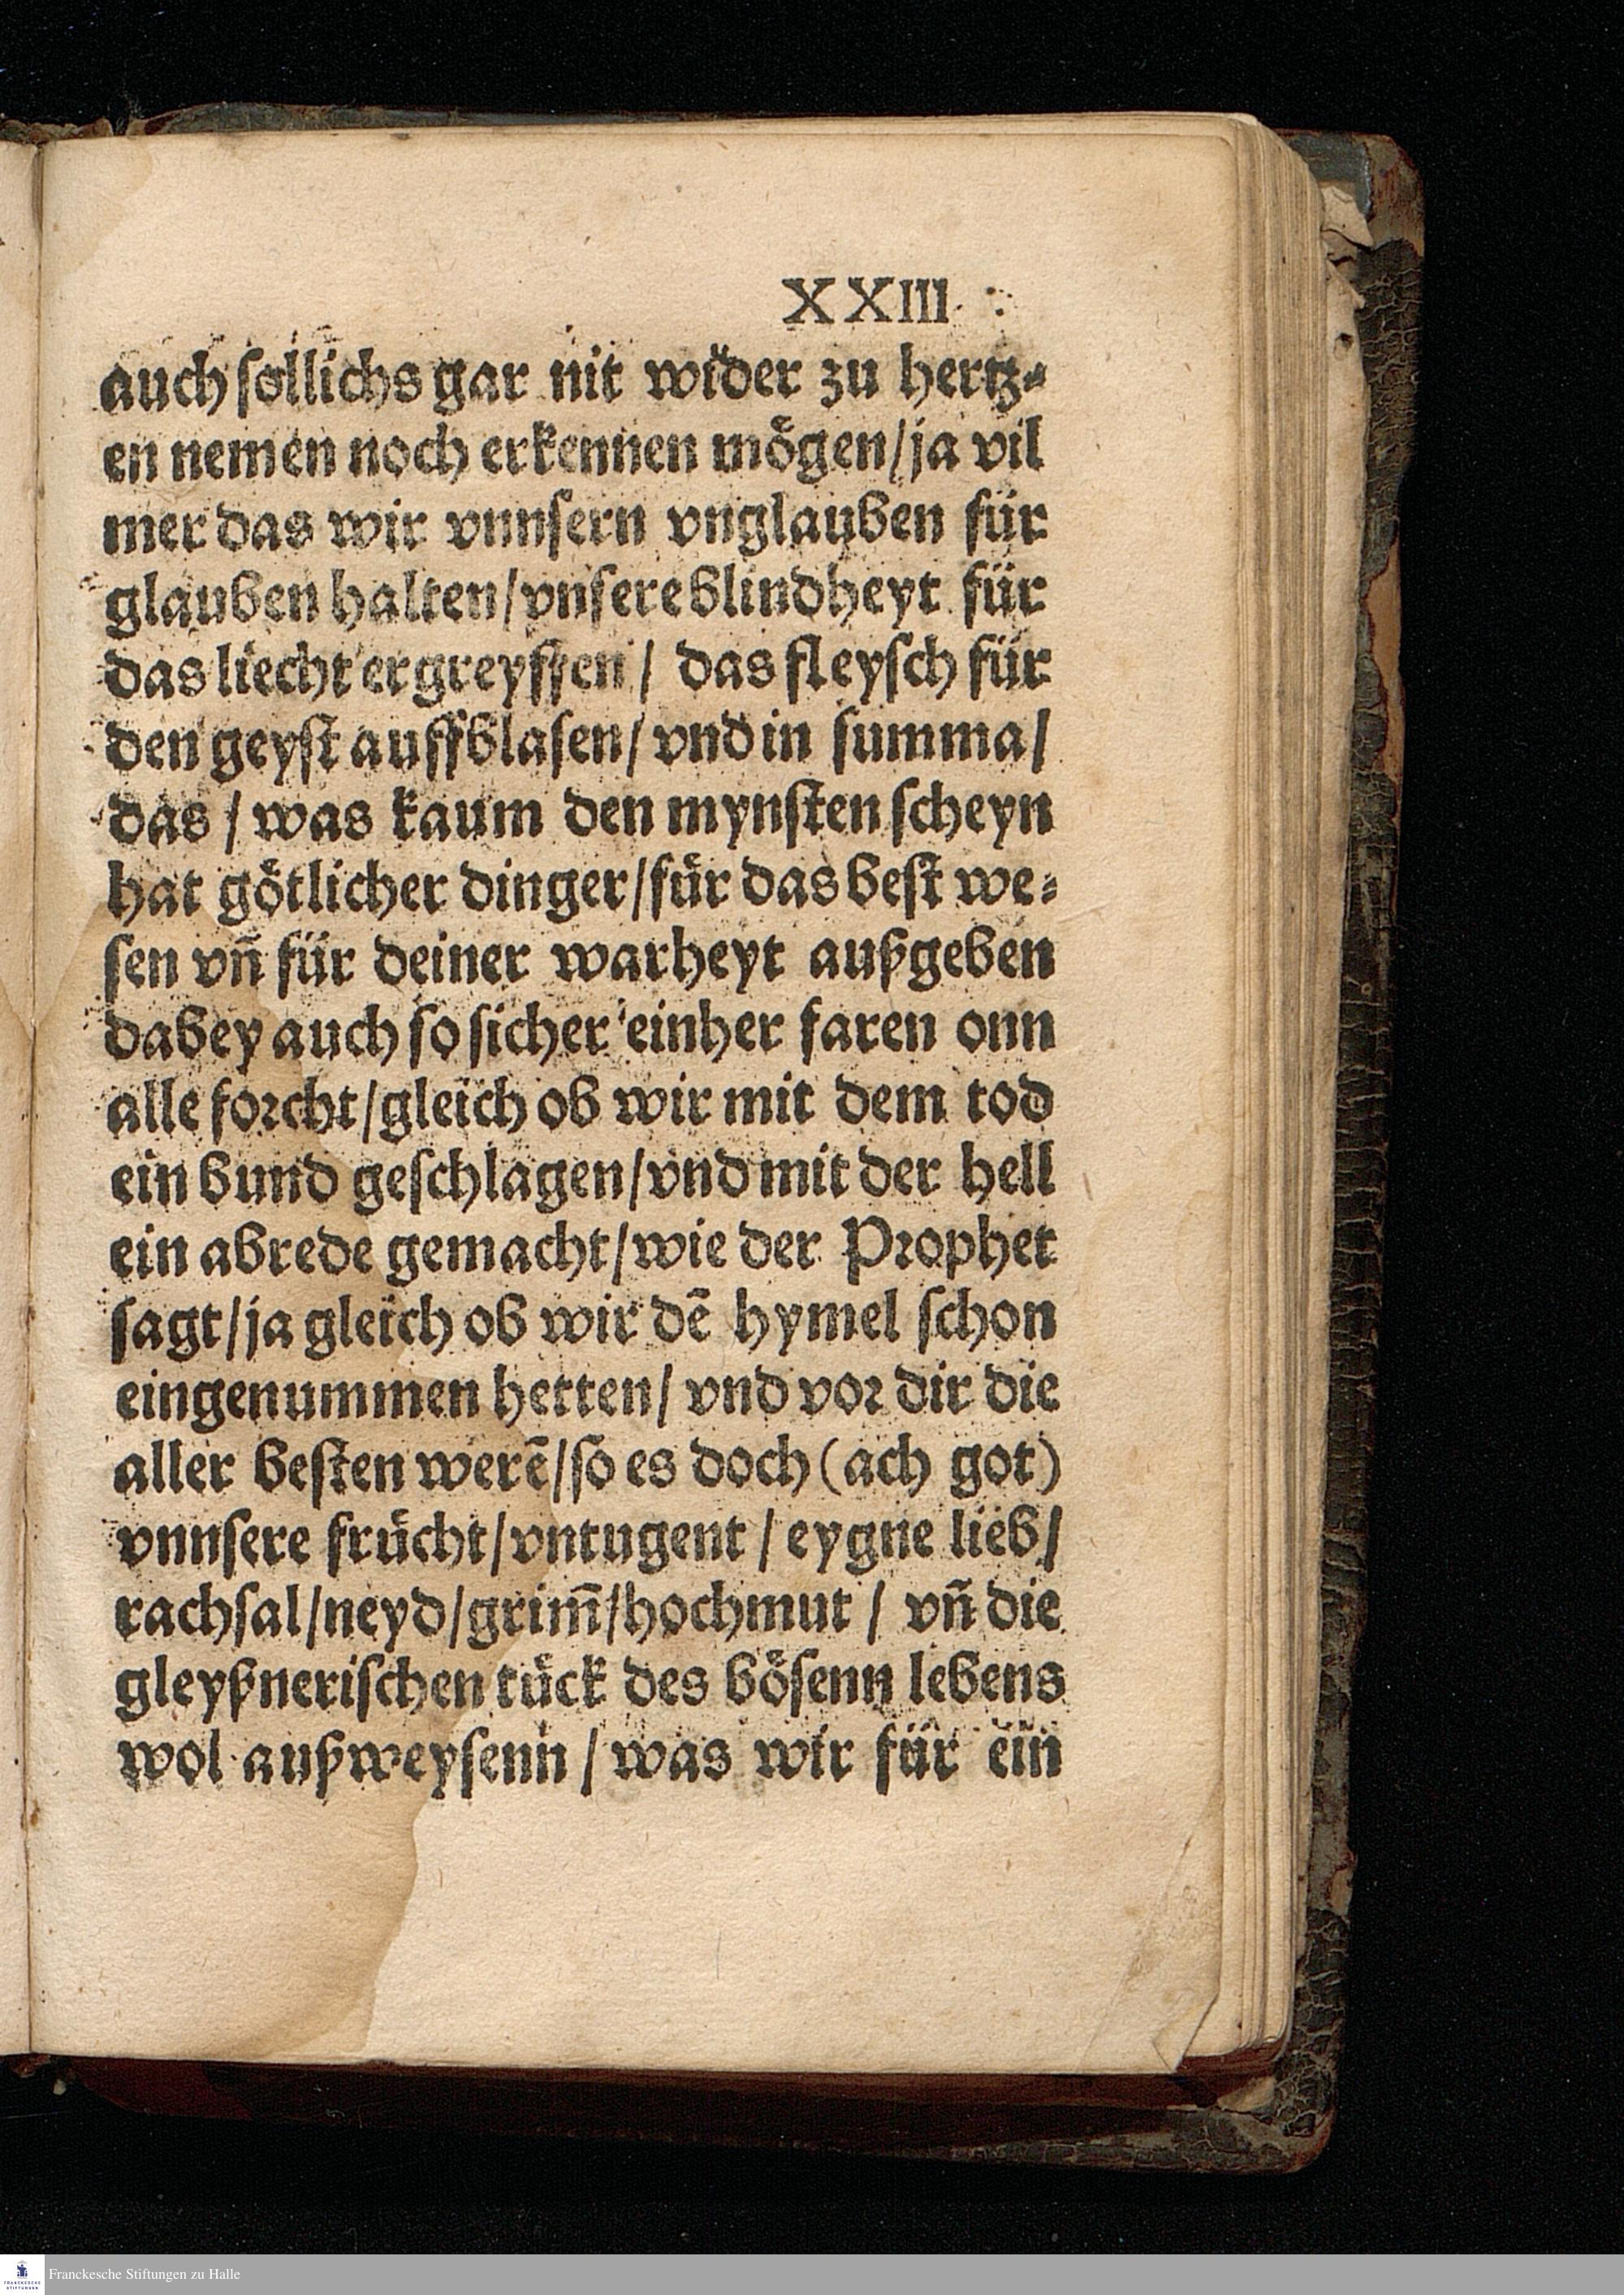 XXIII
auch sollichs gar nit wider zu hertz⸗
en nemen noch erkennen mögen/ja vil
mer das wir vnnsern vnglauben für
glauben halten/vnsere blindheyt für
das liecht ergreyffen/ das fleysch für
den geyst auffblasen/vnd in summa/
das/was kaum den mynsten scheyn
hat götlicher dinger/für das best we⸗
sen vn̄ für deiner warheyt außgeben
dabey auch so sicher einher faren onn
alle forcht/gleich ob wir mit dem tod
ein bund geschlagen/vnd mit der hell
ein abrede gemacht/wie der Prophet
sagt/ja gleich ob wir dē hymel schon
eingenummen hetten/ vnd vor dir die
aller besten werē/so es doch (ach got)
vnnsere frücht/vntugent/eygne lieb/
rachsal/neyd/grim̄/hochmut/ vn̄ die
gleyßnerischen tück des bösenn lebens
wol außweysenn/was wir für ein
Franckesche Stiftungen zu Halle